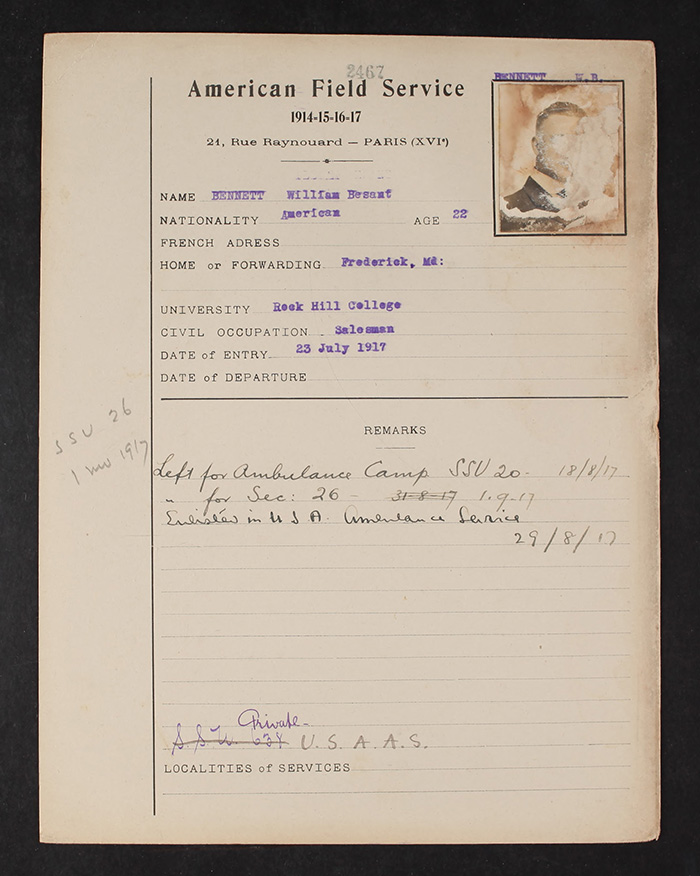 2467
BENNETT W.B.
American Field Service
1914-15-16-17
21, Rue Raynouard — PARIS (XVIe)
NAME BENNETT William Besant
NATIONALITY American AGE 22
FRENCH ADRESS
HOME or FORWARDING Frederick, Md:
UNIVERSITY Rock Hill College
CIVIL OCCUPATION Salesman
DATE of ENTRY 23 July 1917
DATE of DEPARTURE
REMARKS
SSU 26
1 1917
Left for Ambulance Camp SSU 20 - 18/8/17
" for Sec: 26 - 31-8-17 1.9.17
Enlisted in U S A. Ambulance Service
29/8/17
Private-
S.S.U. 634 U.S.A.A.S.
LOCALITIES of SERVICES